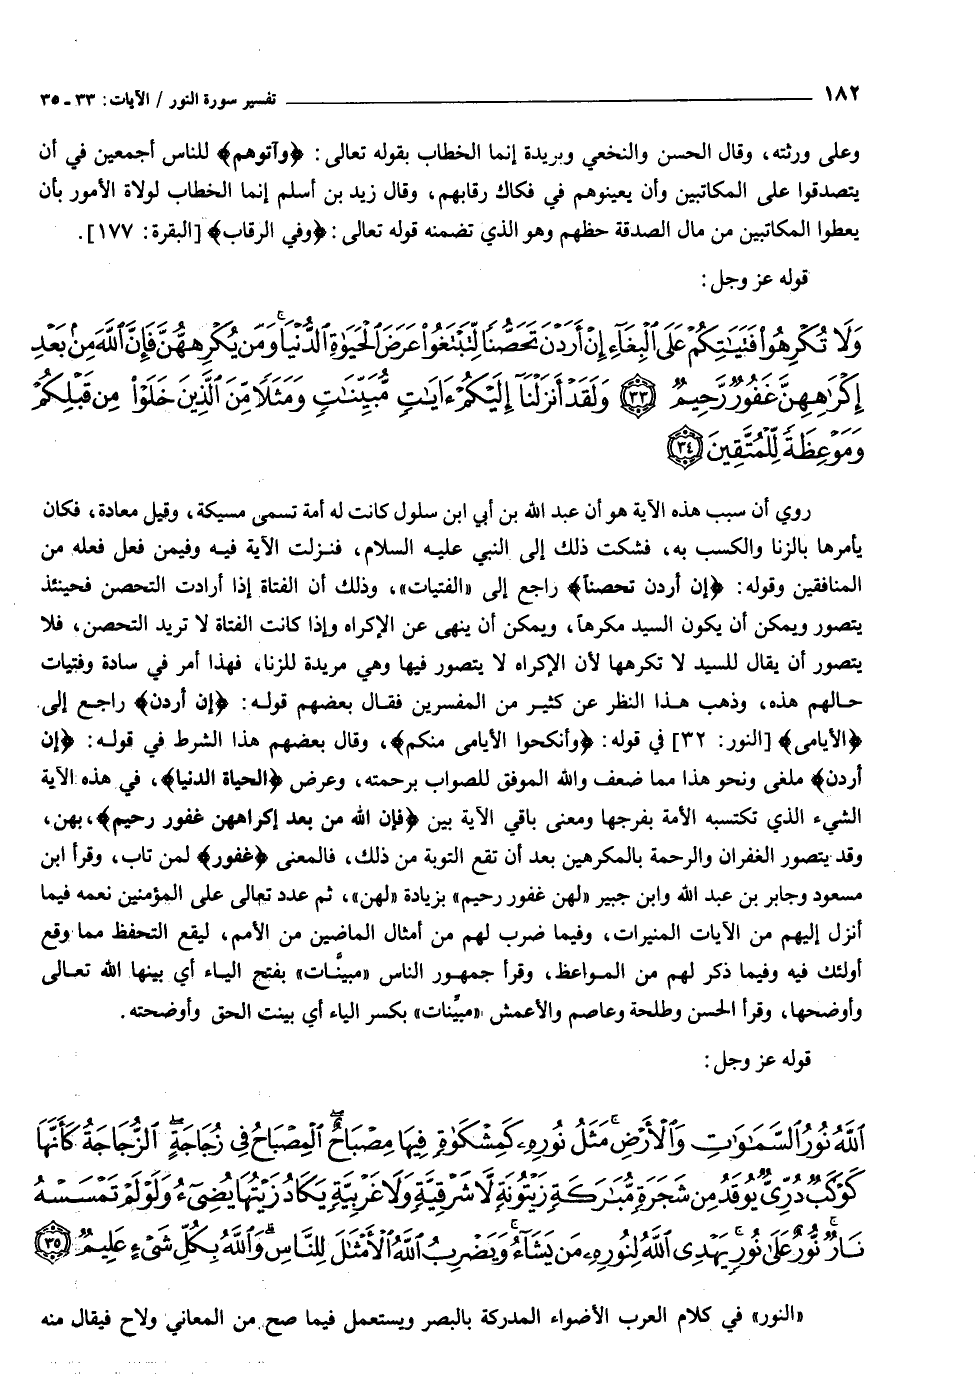 ١٨٢ تفسير سورة النور / الآيات: ٣٣ ـ ٣٥
وعلى ورثته، وقال الحسن والنخعي وبريدة إنما الخطاب بقوله تعالى: ﴿وآتوهم﴾ للناس أجمعين في أن
يتصدقوا على المكاتبين وأن يعينوهم في فكاك رقابهم، وقال زيد بن أسلم إنما الخطاب لولاة الأمور بأن
يعطوا المكاتبين من مال الصدقة حظهم وهو الذي تضمنه قوله تعالى: ﴿وفي الرقاب﴾ [البقرة: ١٧٧].
قوله عز وجل:
وَلَا تُكْرِهُوا۟ فَتَيَـٰتِكُمْ عَلَى ٱلْبِغَآءِ إِنْ أَرَدْنَ تَحَصُّنًا لِّتَبْتَغُوا۟ عَرَضَ ٱلْحَيَوٰةِ ٱلدُّنْيَا ۚ وَمَن يُكْرِههُّنَّ فَإِنَّ ٱللَّهَ مِنۢ بَعْدِ
إِكْرَٰهِهِنَّ غَفُورٌ رَّحِيمٌ ﴿٣٣﴾ وَلَقَدْ أَنزَلْنَآ إِلَيْكُمْ ءَايَـٰتٍ مُّبَيِّنَـٰتٍ وَمَثَلًا مِّنَ ٱلَّذِينَ خَلَوْا۟ مِن قَبْلِكُمْ
وَمَوْعِظَةً لِّلْمُتَّقِينَ ﴿٣٤﴾
روي أن سبب هذه الآية هو أن عبد الله بن أبي ابن سلول كانت له أمة تسمى مسيكة، وقيل معادة، فكان
يأمرها بالزنا والكسب به، فشكت ذلك إلى النبي عليه السلام، فنزلت الآية فيه وفيمن فعل فعله من
المنافقين وقوله: ﴿إن أردن تحصناً﴾ راجع إلى «الفتيات»، وذلك أن الفتاة إذا أرادت التحصن فحينئذ
يتصور ويمكن أن يكون السيد مكرهاً، ويمكن أن ينهى عن الإكراه وإذا كانت الفتاة لا تريد التحصن، فلا
يتصور أن يقال للسيد لا تكرهها لأن الإكراه لا يتصور فيها وهي مريدة للزنا، فهذا أمر في سادة وفتيات
حالهم هذه، وذهب هذا النظر عن كثير من المفسرين فقال بعضهم قوله: ﴿إن أردن﴾ راجع إلى
﴿الأيامى﴾ [النور: ٣٢] في قوله: ﴿وأنكحوا الأيامى منكم﴾، وقال بعضهم هذا الشرط في قوله: ﴿إن
أردن﴾ ملغى ونحو هذا مما ضعف والله الموفق للصواب برحمته، وعرض ﴿الحياة الدنيا﴾، في هذه الآية
الشيء الذي تكتسبه الأمة بفرجها ومعنى باقي الآية بين ﴿فإن الله من بعد إكراههن غفور رحيم﴾، بهن،
وقد يتصور الغفران والرحمة بالمكرهين بعد أن تقع التوبة من ذلك، فالمعنى ﴿غفور﴾ لمن تاب، وقرأ ابن
مسعود وجابر بن عبد الله وابن جبير «لهن غفور رحيم» بزيادة «لهن»، ثم عدد تعالى على المؤمنين نعمه فيما
أنزل إليهم من الآيات المنيرات، وفيما ضرب لهم من أمثال الماضين من الأمم، ليقع التحفظ مما وقع
أولئك فيه وفيما ذكر لهم من المواعظ، وقرأ جمهور الناس «مبيَّنات» بفتح الياء أي بينها الله تعالى
وأوضحها، وقرأ الحسن وطلحة وعاصم والأعمش «مبيِّنات» بكسر الياء أي بينت الحق وأوضحته.
قوله عز وجل:
ٱللَّهُ نُورُ ٱلسَّمَـٰوَٰتِ وَٱلْأَرْضِ ۚ مَثَلُ نُورِهِۦ كَمِشْكَوٰةٍ فِيهَا مِصْبَاحٌ ۖ ٱلْمِصْبَاحُ فِى زُجَاجَةٍ ۖ ٱلزُّجَاجَةُ كَأَنَّهَا
كَوْكَبٌ دُرِّىٌّ يُوقَدُ مِن شَجَرَةٍ مُّبَـٰرَكَةٍ زَيْتُونَةٍ لَّا شَرْقِيَّةٍ وَلَا غَرْبِيَّةٍ يَكَادُ زَيْتُهَا يُضِىٓءُ وَلَوْ لَمْ تَمْسَسْهُ
نَارٌ ۚ نُّورٌ عَلَىٰ نُورٍ ۗ يَهْدِى ٱللَّهُ لِنُورِهِۦ مَن يَشَآءُ ۚ وَيَضْرِبُ ٱللَّهُ ٱلْأَمْثَـٰلَ لِلنَّاسِ ۗ وَٱللَّهُ بِكُلِّ شَىْءٍ عَلِيمٌ ﴿٣٥﴾
«النور» في كلام العرب الأضواء المدركة بالبصر ويستعمل فيما صح من المعاني ولاح فيقال منه